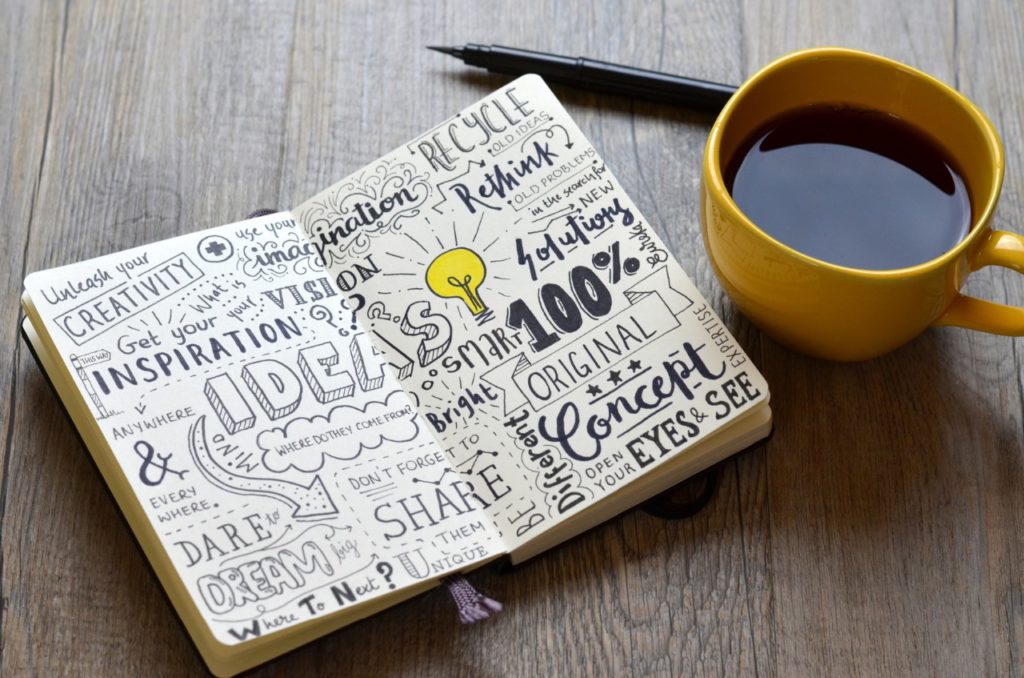 Unleash your
CREATIVITY
use your
imagination
What is
your VISION
?
Get your
INSPIRATION
THIS WAY
ANYWHERE
&
EVERY
WHERE.
IDEAS
MIND
WHERE DO THEY COME FROM?
DARE to
DREAM big
DON'T FORGET
TO
SHARE
THEM
Where To Next?
RECYCLE
OLD IDEAS
Rethink
OLD PROBLEMS
in the search for
NEW
Solutions
100%
SMART
Bright
ORIGINAL
Concept
EXPERTISE
BE
Different
OPEN
YOUR
EYES & SEE
UNIQUE